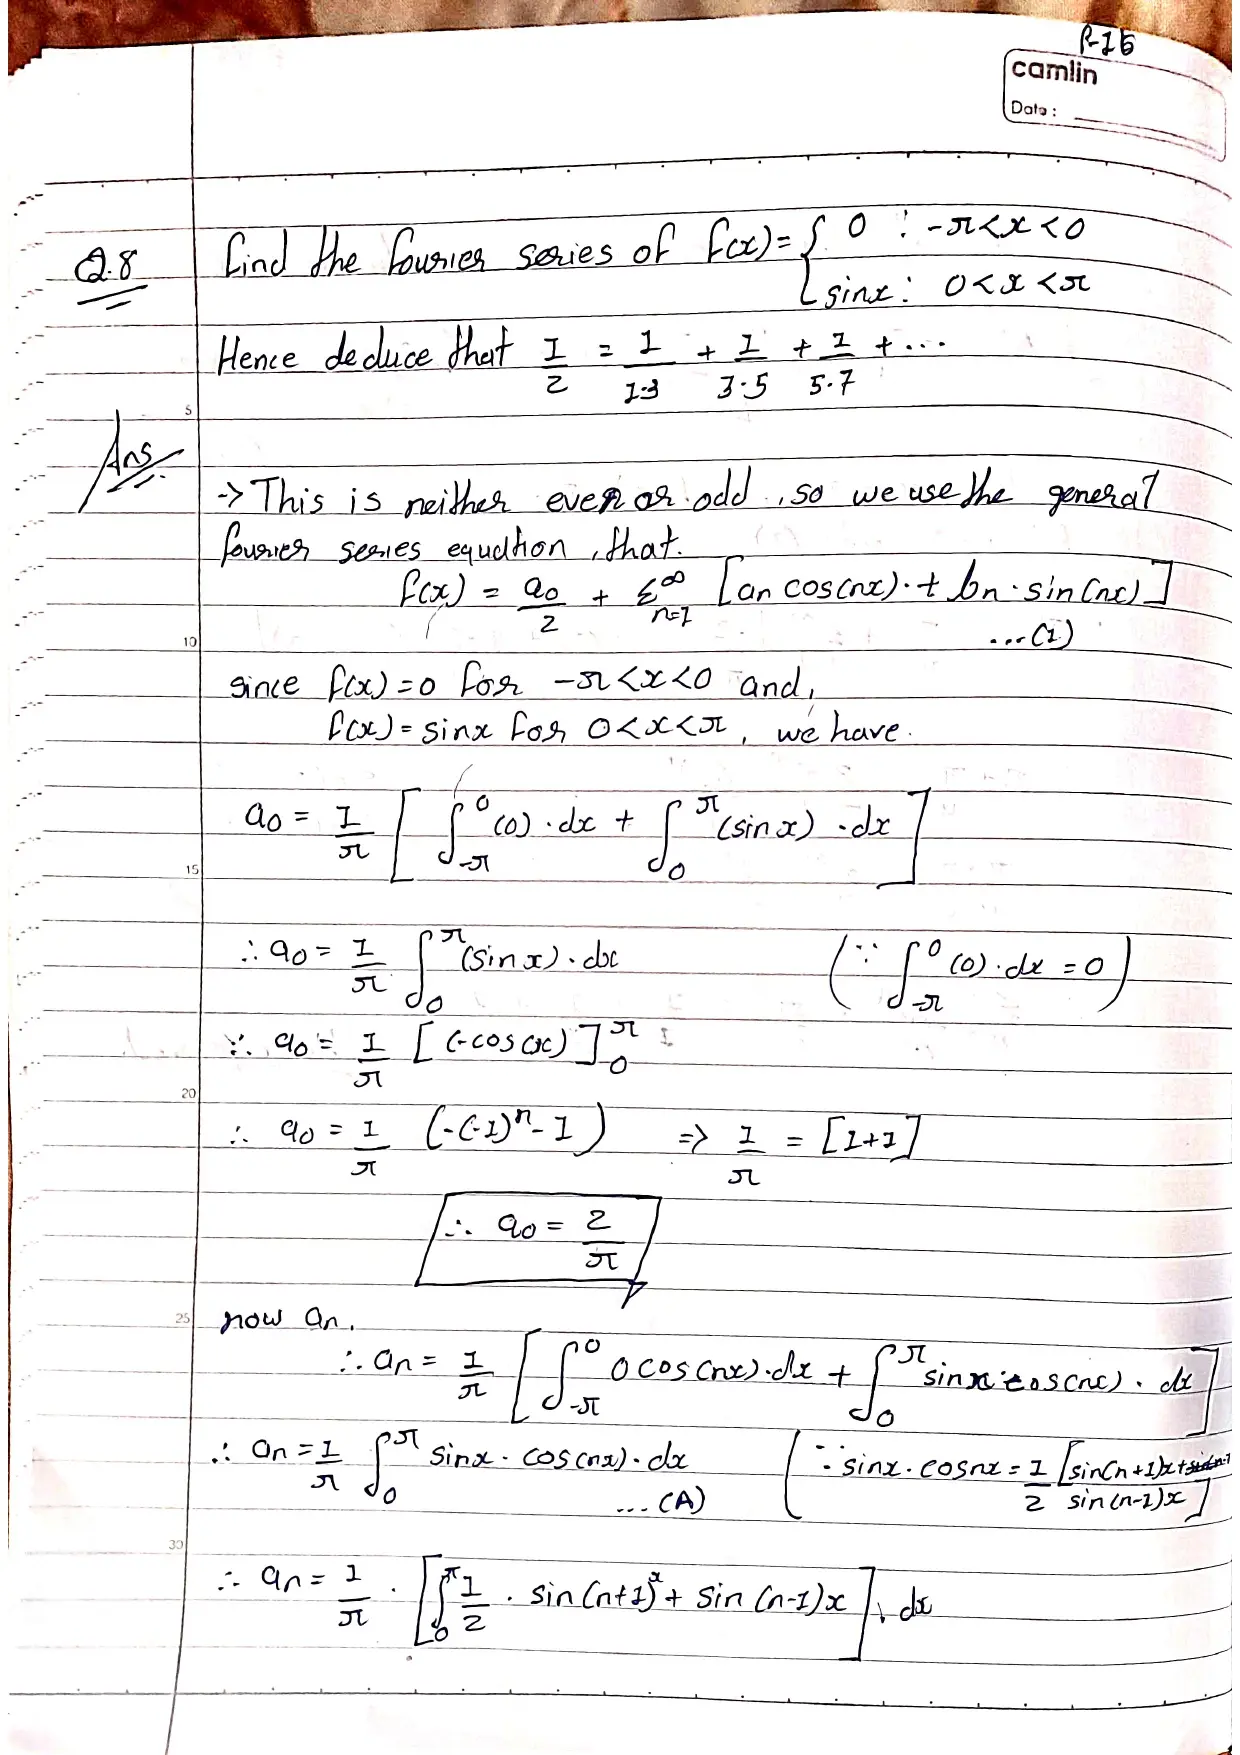 P-15
camlin
Date:
Q.8 find the fourier series of f(x) = { 0 : -π<x<0
sinx : 0<x<π
Hence deduce that 1/2 = 1/1·3 + 1/3·5 + 1/5·7 + ...
5
Ans
-> This is neither even or odd, so we use the general
fourier series equation, that.
f(x) = a0/2 + Σ^∞ n=1 [an cos(nx)·+ bn·sin(nx)]
10
...(1)
since f(x)=0 for -π<x<0 and,
f(x)=sinx for 0<x<π, we have.
a0 = 1/π [ ∫_-π^0 (0)·dx + ∫_0^π (sinx)·dx ]
15
∴ a0 = 1/π ∫_0^π (sinx)·dx (∵ ∫_-π^0 (0)·dx = 0)
∵ a0 = 1/π [(-cosx)]_0^π
20
∴ a0 = 1/π (-(-1)^n - 1) => 1/π = [1+1]
∴ a0 = 2/π
25
now an,
∴ an = 1/π [ ∫_-π^0 0 cos(nx)·dx + ∫_0^π sinx·cos(nx)·dx ]
∴ an = 1/π ∫_0^π sinx·cos(nx)·dx (∵ sinx·cosnx = 1/2 [sin(n+1)x +
...(A) sin(n-1)x]
30
∴ an = 1/π · [∫_0^π 1/2 · sin(n+1)x + sin(n-1)x]·dx